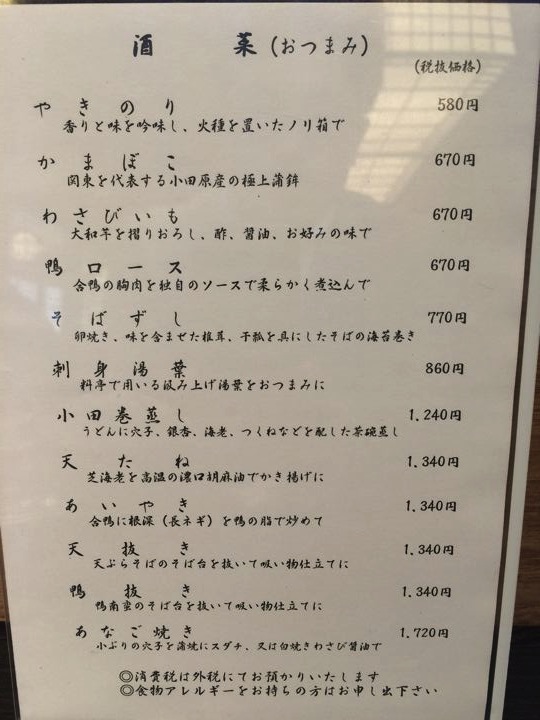 酒菜(おつまみ)
(税抜価格)
やきのり 580円
香りと味を吟味し、火種を置いたノリ箱で
かまぼこ 670円
関東を代表する小田原産の極上蒲鉾
わさびいも 670円
大和芋を摺りおろし、酢、醤油、お好みの味で
鴨ロース 670円
合鴨の胸肉を独自のソースで柔らかく煮込んで
そばずし 770円
卵焼き、味を含ませた椎茸、干瓢を具にしたそばの海苔巻き
刺身湯葉 860円
料亭で用いる汲み上げ湯葉をおつまみに
小田巻蒸し 1.240円
うどんに穴子、銀杏、海老、つくねなどを配した茶碗蒸し
天たね 1.340円
芝海老を高温の濃口胡麻油でかき揚げに
あいやき 1.340円
合鴨に根深(長ネギ)を鴨の脂で炒めて
天抜き 1.340円
天ぷらそばのそば台を抜いて吸い物仕立てに
鴨抜き 1.340円
鴨南蛮のそば台を抜いて吸い物仕立てに
あなご焼き 1.720円
小ぶりの穴子を蒲焼にスダチ、又は白焼きわさび醤油で
◎消費税は外税にてお預かりいたします
◎食物アレルギーをお持ちの方はお申し出下さい